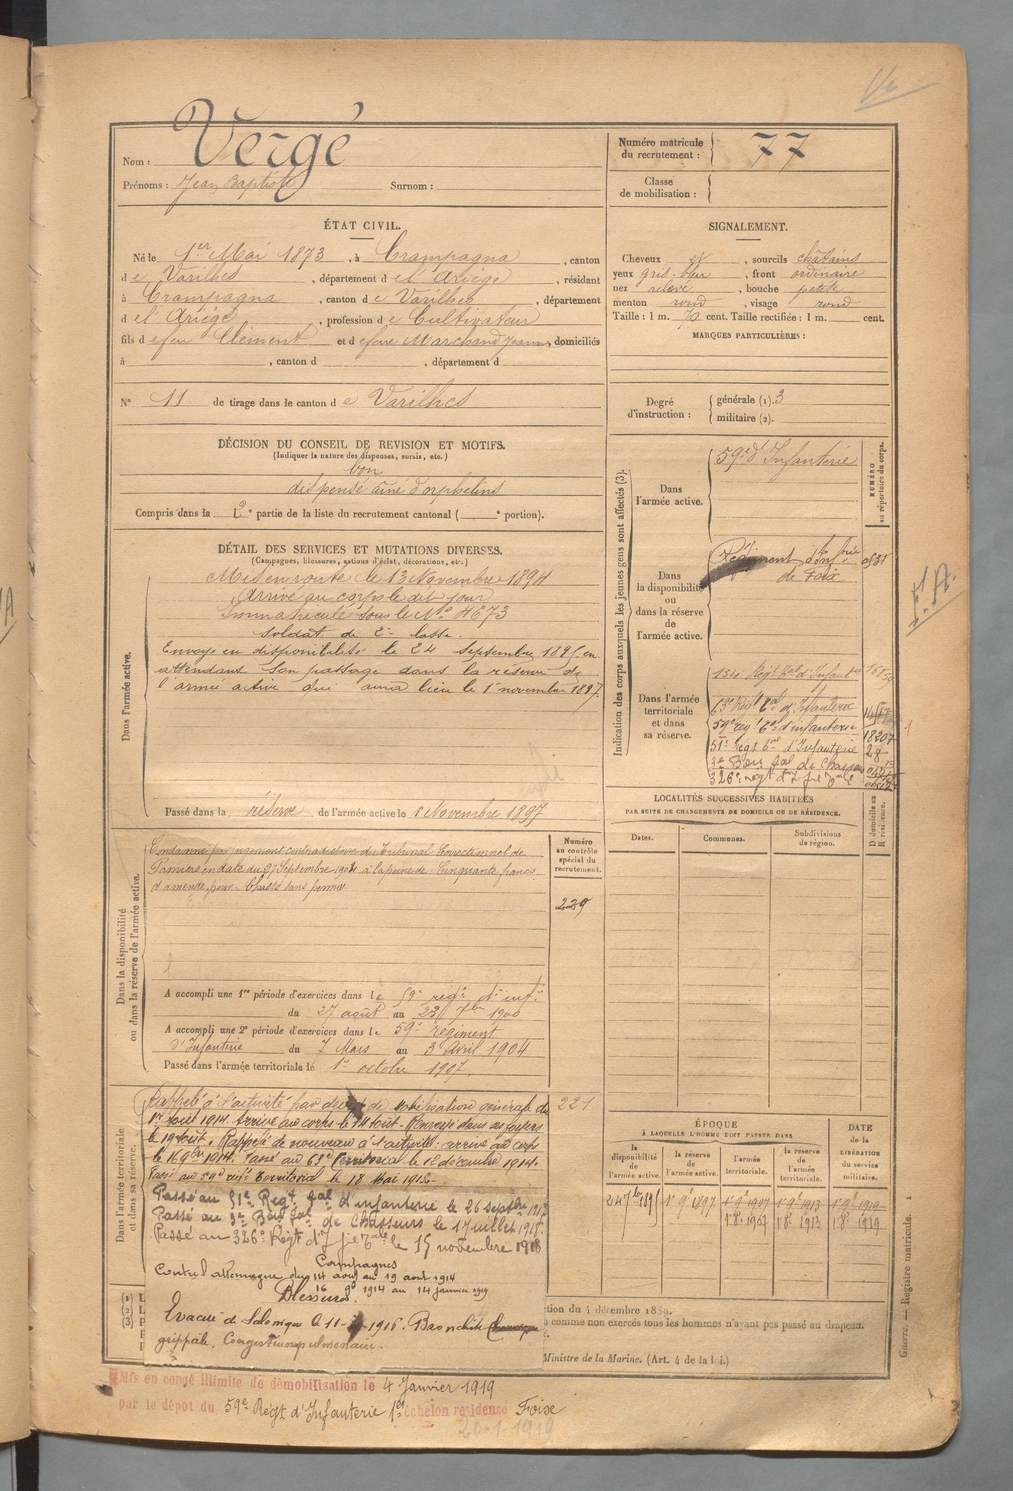 Nom : Vergé
Prénoms : Jean Baptiste Surnom :
Numéro matricule du recrutement : 77
Classe de mobilisation :
ÉTAT CIVIL.
Né le 1er Mai 1873, à Crampagna, canton
de Varilhes, département de l'Ariège, résidant
à Crampagna, canton de Varilhes, département
de l'Ariège, profession de Cultivateur
fils de feu Clément et de feue Marchand Jeanne, domiciliés
à , canton d , département d
N° 11 de tirage dans le canton de Varilhes
SIGNALEMENT.
Cheveux et, sourcils châtains
yeux gris-bleu, front ordinaire
nez relevé, bouche petite
menton rond, visage rond
Taille : 1 m. 70 cent. Taille rectifiée : 1 m. cent.
MARQUES PARTICULIÈRES :
Degré d'instruction : générale (1). 3
militaire (2).
DÉCISION DU CONSEIL DE REVISION ET MOTIFS.
(Indiquer la nature des dispenses, sursis, etc.)
bon
dispensé aîné d'orphelins
Compris dans la 3e partie de la liste du recrutement cantonal ( e portion).
DÉTAIL DES SERVICES ET MUTATIONS DIVERSES.
(Campagnes, blessures, actions d'éclat, décorations, etc.)
Dans l'armée active.
Mis en route le 13 Novembre 1894
Arrivé au corps le dit jour
Immatriculé sous le No 4673
Soldat de 2e classe.
Envoyé en disponibilité le 24 septembre 1895 en
attendant son passage dans la réserve de
l'armée active qui aura lieu le 1er novembre 1897.
Passé dans la réserve de l'armée active le 1 Novembre 1897
Indication des corps auxquels les jeunes gens sont affectés (3).
NUMÉRO au répertoire du corps.
Dans l'armée active.
59e d'Infanterie
Dans la disponibilité ou dans la réserve de l'armée active.
Régiment d'Inf.rie
de Foix
Dans l'armée territoriale et dans sa réserve.
134 Régt tal d'Infanterie
63e Régt tal d'Infanterie
59e régt tal d'infanterie 18207
51e Régt tal d'Infanterie 28
3e Bon tal de Chasseurs
326e régt d'Infrie tale
LOCALITÉS SUCCESSIVES HABITÉES
PAR SUITE DE CHANGEMENTS DE DOMICILE OU DE RÉSIDENCE.
Dates. Communes. Subdivisions de région. D domicile ou R résidence.
Dans la disponibilité ou dans la réserve de l'armée active.
Condamné par jugement contradictoire du Tribunal Correctionnel de
Pamiers en date du 27 Septembre 1904 à la peine de Cinquante francs
d'amende pour Chasse sans permis
Numéro au contrôle spécial du recrutement.
229
A accompli une 1re période d'exercices dans le 59e régt d'infie
du 27 août au 23 7bre 1900
A accompli une 2e période d'exercices dans le 59e régiment
d'Infanterie du 7 Mars au 3 Avril 1904
Passé dans l'armée territoriale le 1er octobre 1907.
Dans l'armée territoriale et dans sa réserve.
Rappelé à l'activité par décret de mobilisation générale du
1er Août 1914. Arrivé au corps le 14 Août. Renvoyé dans ses foyers
le 19 Août. Rappelé de nouveau à l'activité. arrivé au corps
le 16 9bre 1914. Passé au 63e Territorial le 12 décembre 1914.
Passé au 59e régt Territorial le 18 Mai 1915.
Passé au 51e Régt tal d'infanterie le 26 septbre 1915
Passé au 3e Bon tal de Chasseurs le 1 juillet 1918.
Passé au 326e Régt d'Infie tale le 15 novembre 1918
Campagnes
Contre l'allemagne du 14 août au 19 août 1914
16 9bre 1914 au 14 janvier 1919
Blessures.
Evacué de Salonique le 11- -1916. Bronchite
grippale. Congestion pulmonaire.
221
ÉPOQUE
À LAQUELLE L'HOMME DOIT PASSER DANS
la disponibilité de l'armée active. la réserve de l'armée active. l'armée territoriale. la réserve de l'armée territoriale. DATE de la LIBÉRATION du service militaire.
24 7bre 1895 1er 9e 1897 1er 9e 1907 1er 9e 1913 1er 9e 1919
1er 8e 1907 1er 8e 1913 1er 8e 1919
ction du 4 décembre 1889.
comme non exercés tous les hommes n'ayant pas passé au drapeau.
Ministre de la Marine. (Art. 4 de la loi.)
Guerre. — Registre matricule. 1
Mis en congé illimité de démobilisation le 4 Janvier 1919
par le dépôt du 59e Régt d'Infanterie 1er échelon résidence Foix
20-1-1919